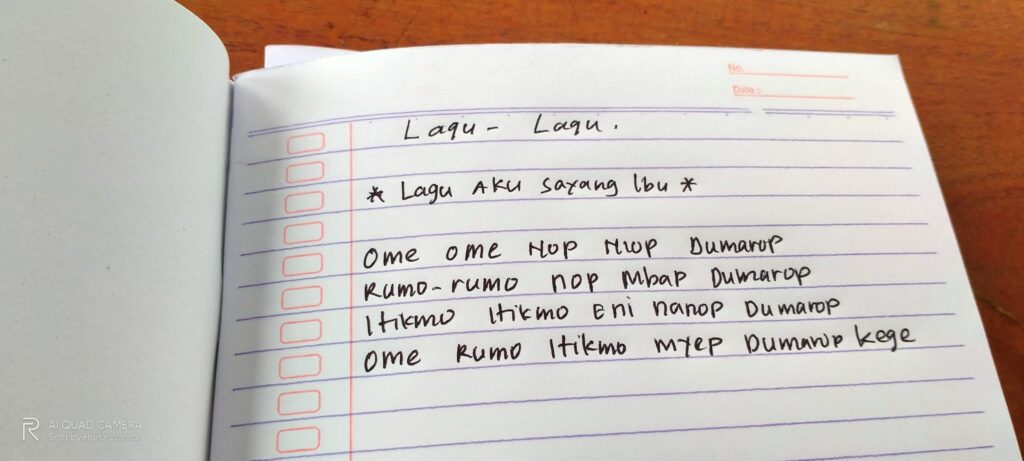 No.
Date :
Lagu - Lagu.
* Lagu AKU Sayang Ibu *
Ome ome Nop Niop Dumarop
Rumo-rumo nop Mbap Dumarop
Itikmo Itikmo Eni nanop Dumarop
Ome Rumo Itikmo myep Dumarop kege
AI QUAD CAMERA
Shot by